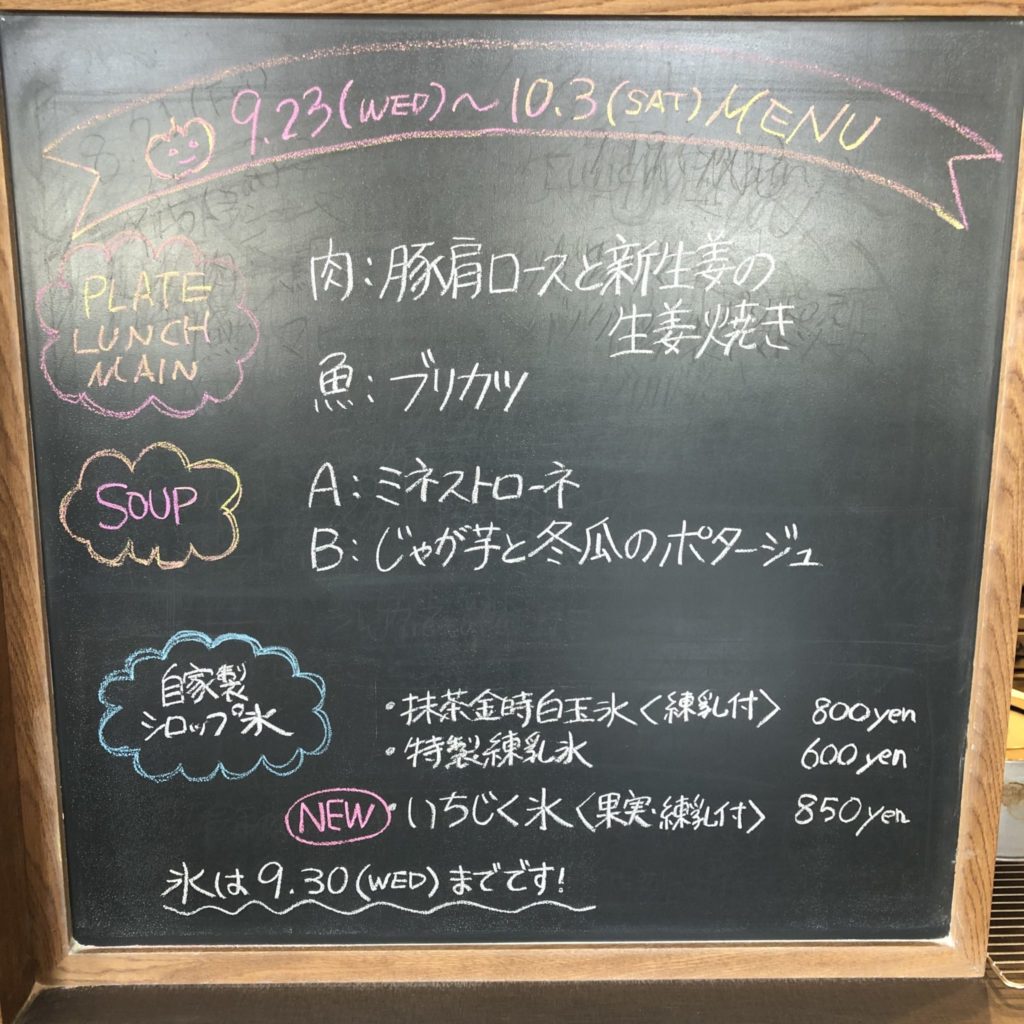 9.23(WED)～10.3(SAT) MENU
PLATE
LUNCH
MAIN
肉：豚肩ロースと新生姜の
生姜焼き
魚：ブリカツ
SOUP
A：ミネストローネ
B：じゃが芋と冬瓜のポタージュ
自家製
シロップ氷
・抹茶金時白玉氷〈練乳付〉 800yen
・特製練乳氷 600yen
NEW ・いちじく氷〈果実・練乳付〉 850yen
氷は9.30(WED)までです!